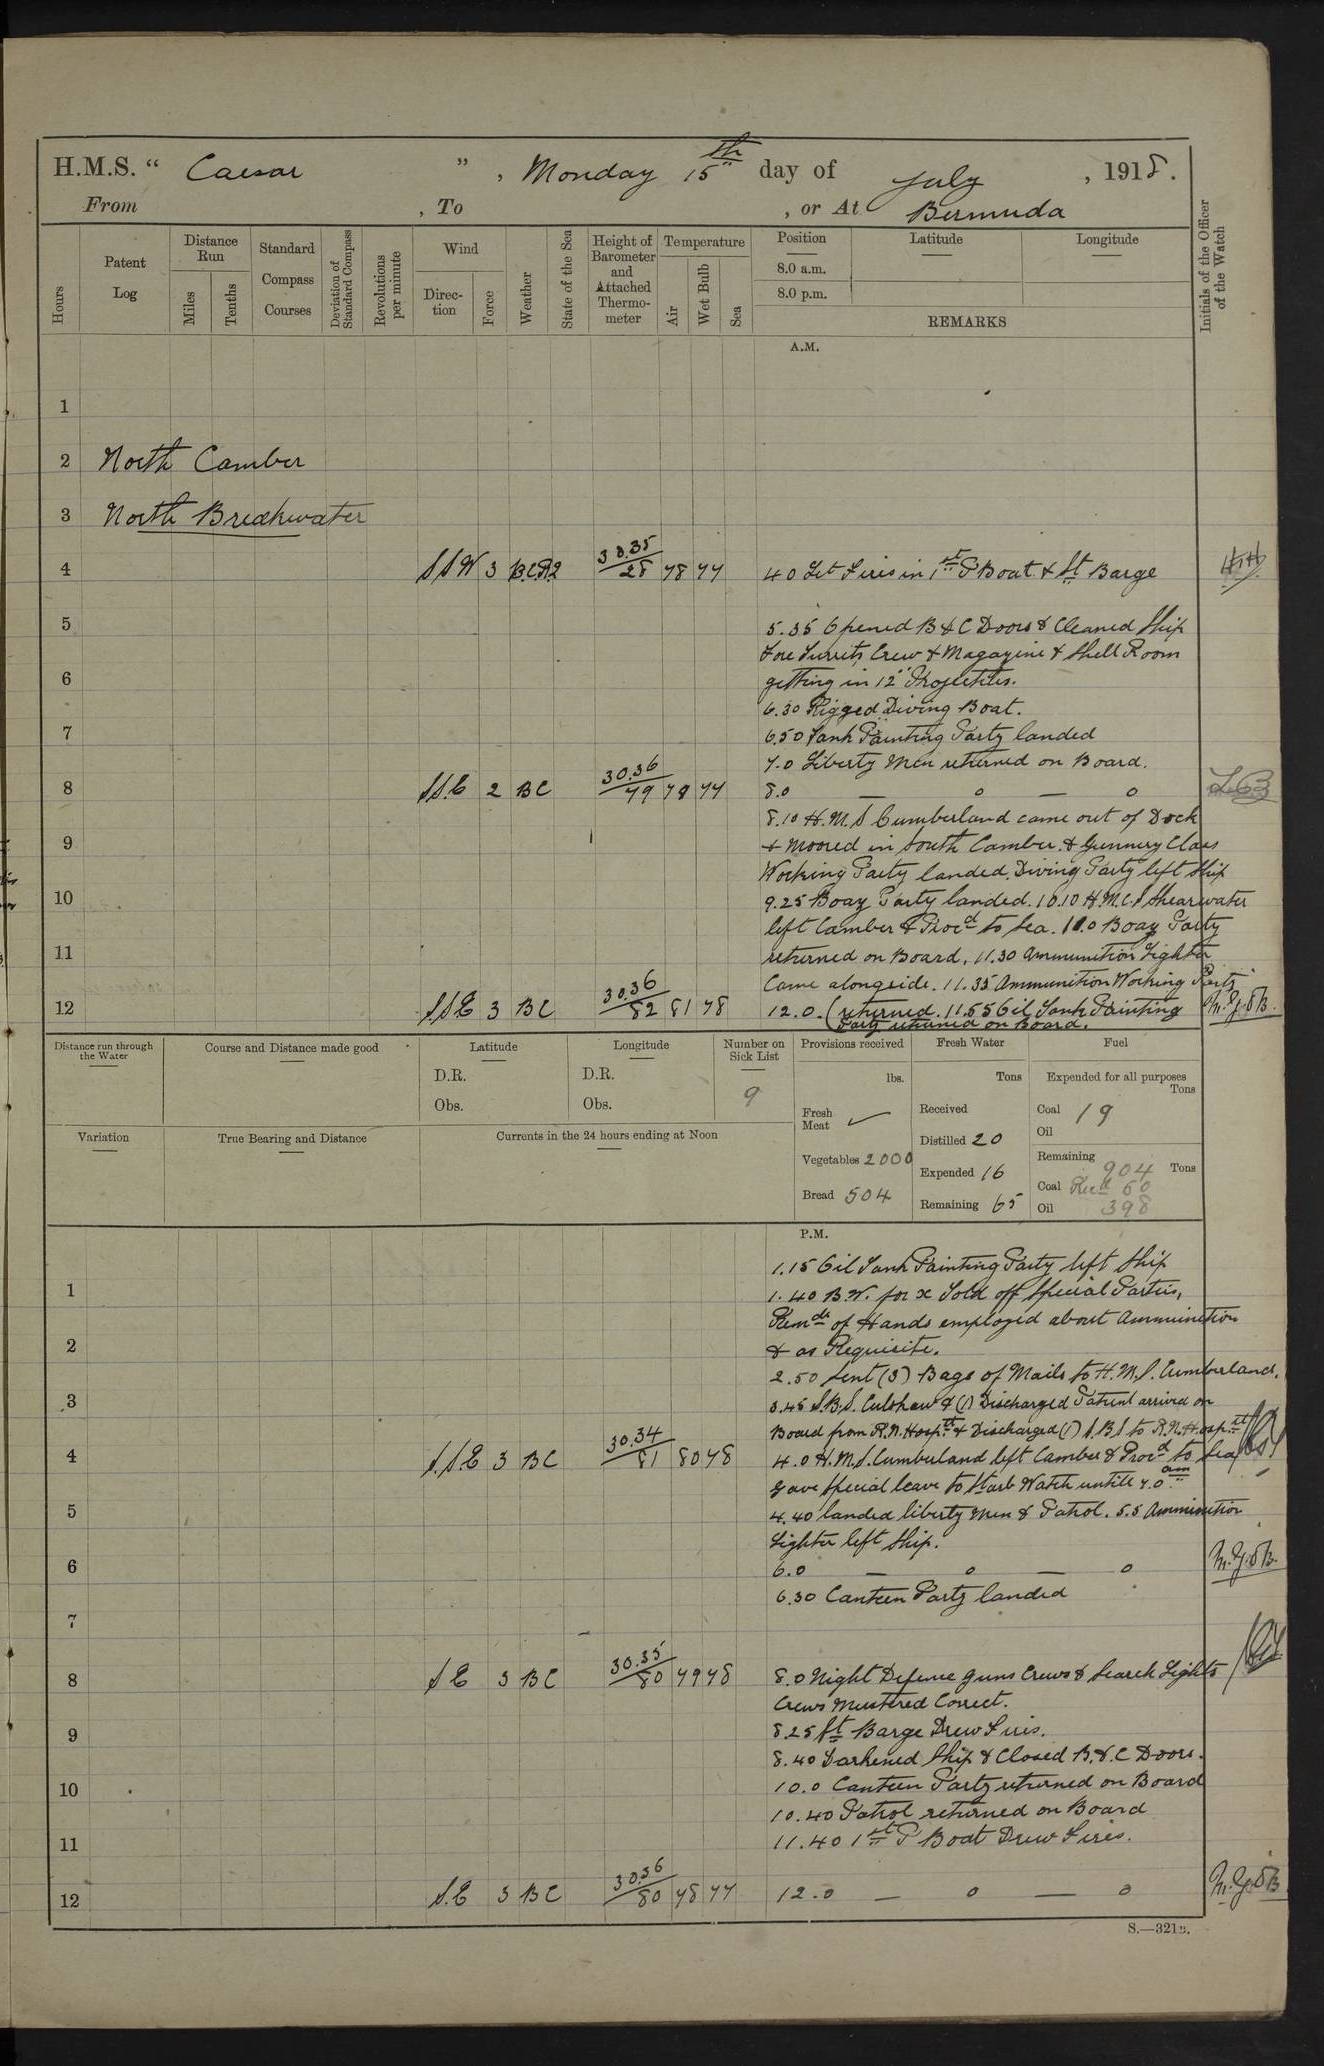 H.M.S. “ Caesar ”, Monday 15th day of July, 1918.
From , To , or At Bermuda
Hours
Patent Log
Distance Run
Miles
Tenths
Standard Compass Courses
Deviation of Standard Compass
Revolutions per minute
Wind
Direction
Force
Weather
State of the Sea
Height of Barometer and Attached Thermometer
Temperature
Air
Wet Bulb
Sea
Position
8.0 a.m.
8.0 p.m.
Latitude
Longitude
REMARKS
Initials of the Officer of the Watch
A.M.
1
2 North Camber
3 North Breakwater
4 SSW 3 30.35 78 77 4 0 Lit Fires in 1st P Boat & St Barge
5 5.35 Opened B & C Doors & Cleaned Ship
Fore Turrets Crew & Magazine & Shell Room
6 getting in 12" Projectiles.
6.30 Rigged Diving Boat.
7 6.50 Tank Painting Party landed
7.0 Liberty Men returned on Board.
8 S.S.E 2 BC 30.36 79 78 77 8.0 — o — o
8.10 H.M.S Cumberland came out of Dock
9 & moored in South Camber. & Gunnery Class
Working Party landed. Diving Party left Ship
10 9.25 Boaz Party landed. 10.10 H.M.C.S Shearwater
left Camber & Procd to Sea. 11.0 Boaz Party
11 returned on Board, 11.30 Ammunition Lighter
Came alongside. 11.35 Ammunition Working Party
12 SSE 3 BC 30.36 82 81 78 12.0. (returned. 11.55 Oil Tank Painting
Party returned on Board.
Distance run through the Water
Course and Distance made good
Latitude
D.R.
Obs.
Longitude
D.R.
Obs.
Number on Sick List
9
Provisions received
lbs.
Fresh Meat
Vegetables 2000
Bread 504
Fresh Water
Tons
Received
Distilled 20
Expended 16
Remaining 65
Fuel
Expended for all purposes
Tons
Coal 19
Oil
Remaining 904 Tons
Coal Recd 60
Oil 398
Variation
True Bearing and Distance
Currents in the 24 hours ending at Noon
P.M.
1.15 Oil Tank Painting Party left Ship
1 1.40 B.W. for x Told off Special Parties,
Remdr of Hands employed about Ammunition
2 & as Requisite.
2.50 Sent (3) Bags of Mails to H.M.S. Cumberland.
3 3.45 S.B.S. Culshaw & (1) Discharged Patient arrived on
Board from R.N. Hospt & Discharged (1) S.B.S to R.N. Hospt
4 S.S.E 3 BC 30.34 81 80 78 4.0 H.M.S. Cumberland left Camber & Procd to Sea
Gave Special leave to Starb Watch untill 7.0 am
5 4.40 landed liberty Men & Patrol. 5.5 Ammunition
Lighter left Ship.
6 6.0 — o — o
6.30 Canteen Party landed
7
8 S E 3 BC 30.35 80 79 78 8.0 Night Defence Guns Crews & Search Lights
Crews Mustered Correct.
9 8.25 St Barge Drew Fires.
8.40 Darkened Ship & Closed B. & C Doors.
10 10.0 Canteen Party returned on Board
10.40 Patrol returned on Board
11 11.40 1st P Boat Drew Fires.
12 S.E 3 BC 30.36 80 78 77 12.0 — o — o
S.—321B.